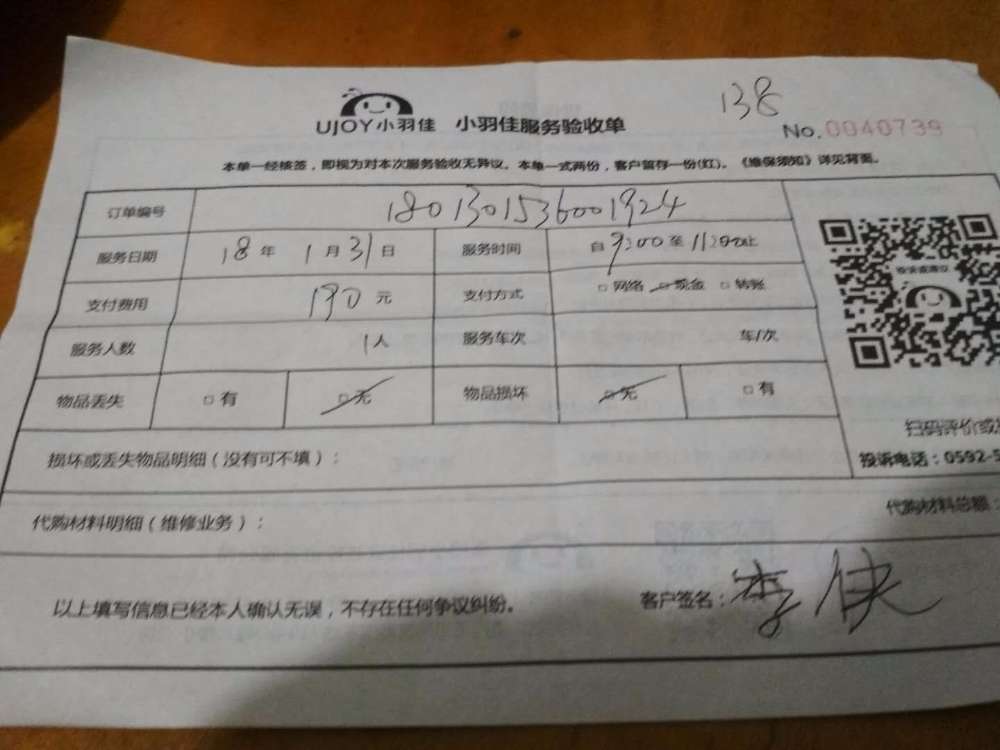 138
UJOY小羽佳 小羽佳服务验收单
No.0040739
本单一经核签，即视为对本次服务验收无异议。本单一式两份，客户留存一份(红)。《维保须知》详见背面。
订单编号 1801301536001924
服务日期 18年 1月31日 服务时间 自9:00至11:00止
支付费用 190元 支付方式 □网络 □现金 □转账
服务人数 1人 服务车次 车/次
物品丢失 □有 □无 物品损坏 □无 □有
扫码评价或
损坏或丢失物品明细（没有可不填）：
投诉电话：0592-5
代购材料明细（维修业务）： 代购材料总额：
以上填写信息已经本人确认无误，不存在任何争议纠纷。 客户签名：李